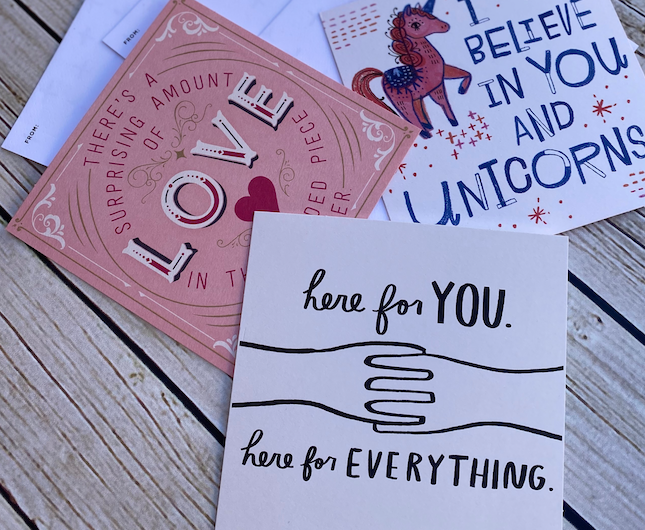 FROM:
FROM:
THERE'S A
SURPRISING AMOUNT
OF
LOVE
IN
PIECE
I
BELIEVE
IN YOU
AND
UNICORNS
here for YOU.
here for EVERYTHING.